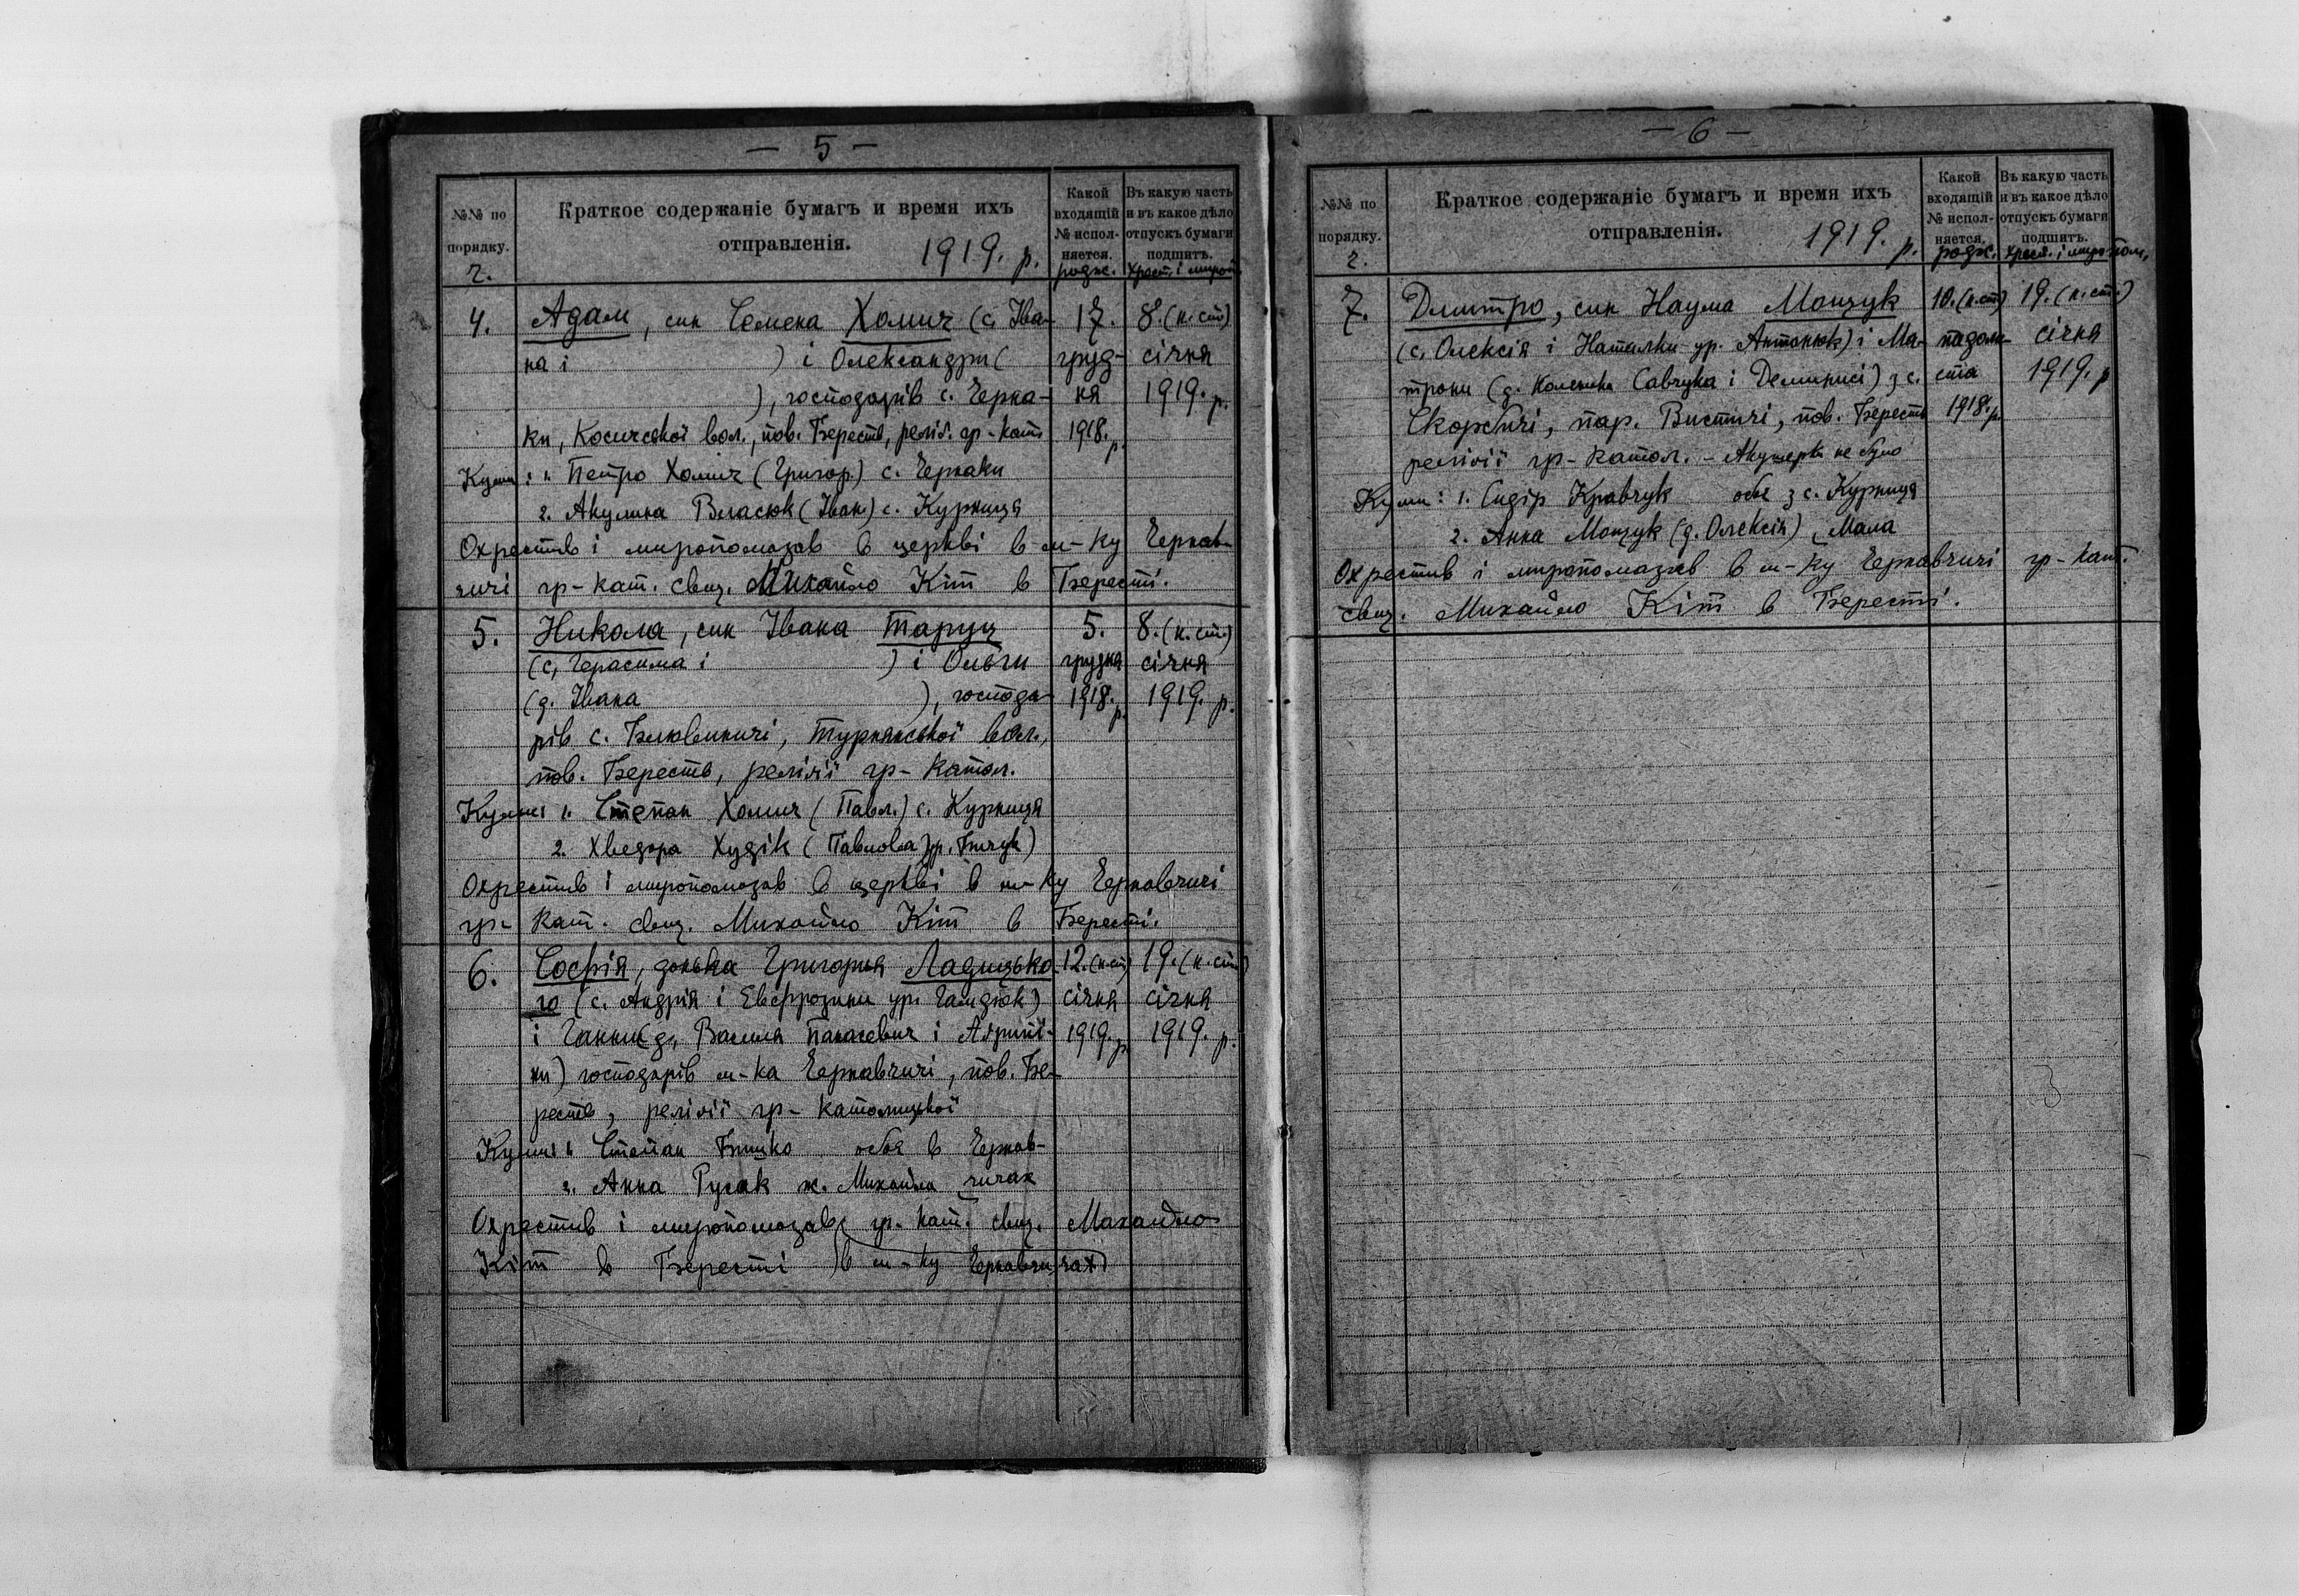 — 5 —
№№ по порядку.
ч.
Краткое содержаніе бумагъ и время ихъ
отправленія. 1919. р.
Какой
входящій
№ испол-
няется.
родж.
Въ какую часть
и въ какое дѣло
отпускъ бумаги
подшитъ.
хрест. і миропом.
4. Адам, син Семена Хомич (с. Іва- 17. 8. (н. ст.)
на і ) і Олександри ( груд- січня
), господарів с. Черня- ня 1919. р.
ки, Косичської вол., пов. Берестя, реліґ. гр-кат. 1918. р.
Куми: 1. Петро Хомич (Григор.) с. Черняки
2. Акулина Власюк (Іван.) с. Курниця
Охрестив і миропомазав в церкві в м-ку Чернав-
чичі гр-кат. свящ. Михайло Кіт в Бересті.
5. Никола, син Івана Таруц 5. 8. (н. ст.)
(с. Герасима і ) і Ольги грудня січня
(д. Івана ), господа- 1918. р. 1919. р.
рів с. Вельвиничі, Турнянської вол.,
пов. Берестя, реліґії гр-катол.
Куми: 1. Степан Хомич (Павл.) с. Курниця
2. Хведора Худік (Павлова)
Охрестив і миропомазав в церкві в м-ку Чернавчичі
гр-кат. свящ. Михайло Кіт в Бересті.
6. Софія, донька Григорія Ладицько- 12. (н. ст.) 19. (н. ст.)
го (с. Андрія і Евфрозини ур. Гамдюк) січня січня
і Ганни (д. Василя Панасевич і Аґрипі- 1919. р. 1919. р.
ни) господарів м-ка Чернавчичі, пов. Бе-
рестя, реліґії гр-католицької
Куми: 1. Степан обоє в Чернав-
2. Анна Русак ж. Михайла чичах
Охрестив і миропомазав гр-кат. свящ. Михайло
Кіт в Бересті (в м-ку Чернавчичах)
— 6 —
№№ по
порядку.
ч.
Краткое содержаніе бумагъ и время ихъ
отправленія. 1919. р.
Какой
входящій
№ испол-
няется.
родж.
Въ какую часть
и въ какое дѣло
отпускъ бумаги
подшитъ.
хрест. і миропом.
7. Дмитро, син Наума Мощук 10. (н. ст.) 19. (н. ст.)
(с. Олексія і Наталки ур. Антонюк) і Ма- падоли- січня
трони (д. Савчука і ) з с. ста 1919. р.
Скорбичі, пар. Вистичі, пов. Берестя 1918. р.
реліґії гр-катол. - Акушерки не було
Куми: 1. Сидір Кравчук обоє з с. Курниця
2. Анна Мощук (д. Олексія) Мала
Охрестив і миропомазав в м-ку Чернавчичі гр-кат.
свящ. Михайло Кіт в Бересті.